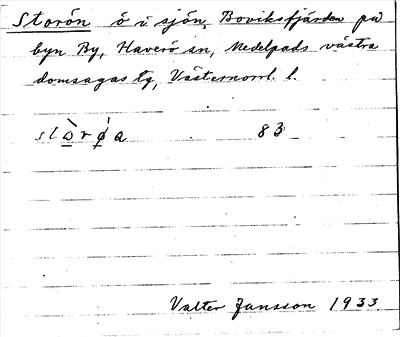 Storön ö i sjön, Boviksfjärden på
byn By, Haverö sn, Medelpads västra
domsagas tg, Västernorrl. l.
stò̠rǿa 83
Valter Jansson 1933